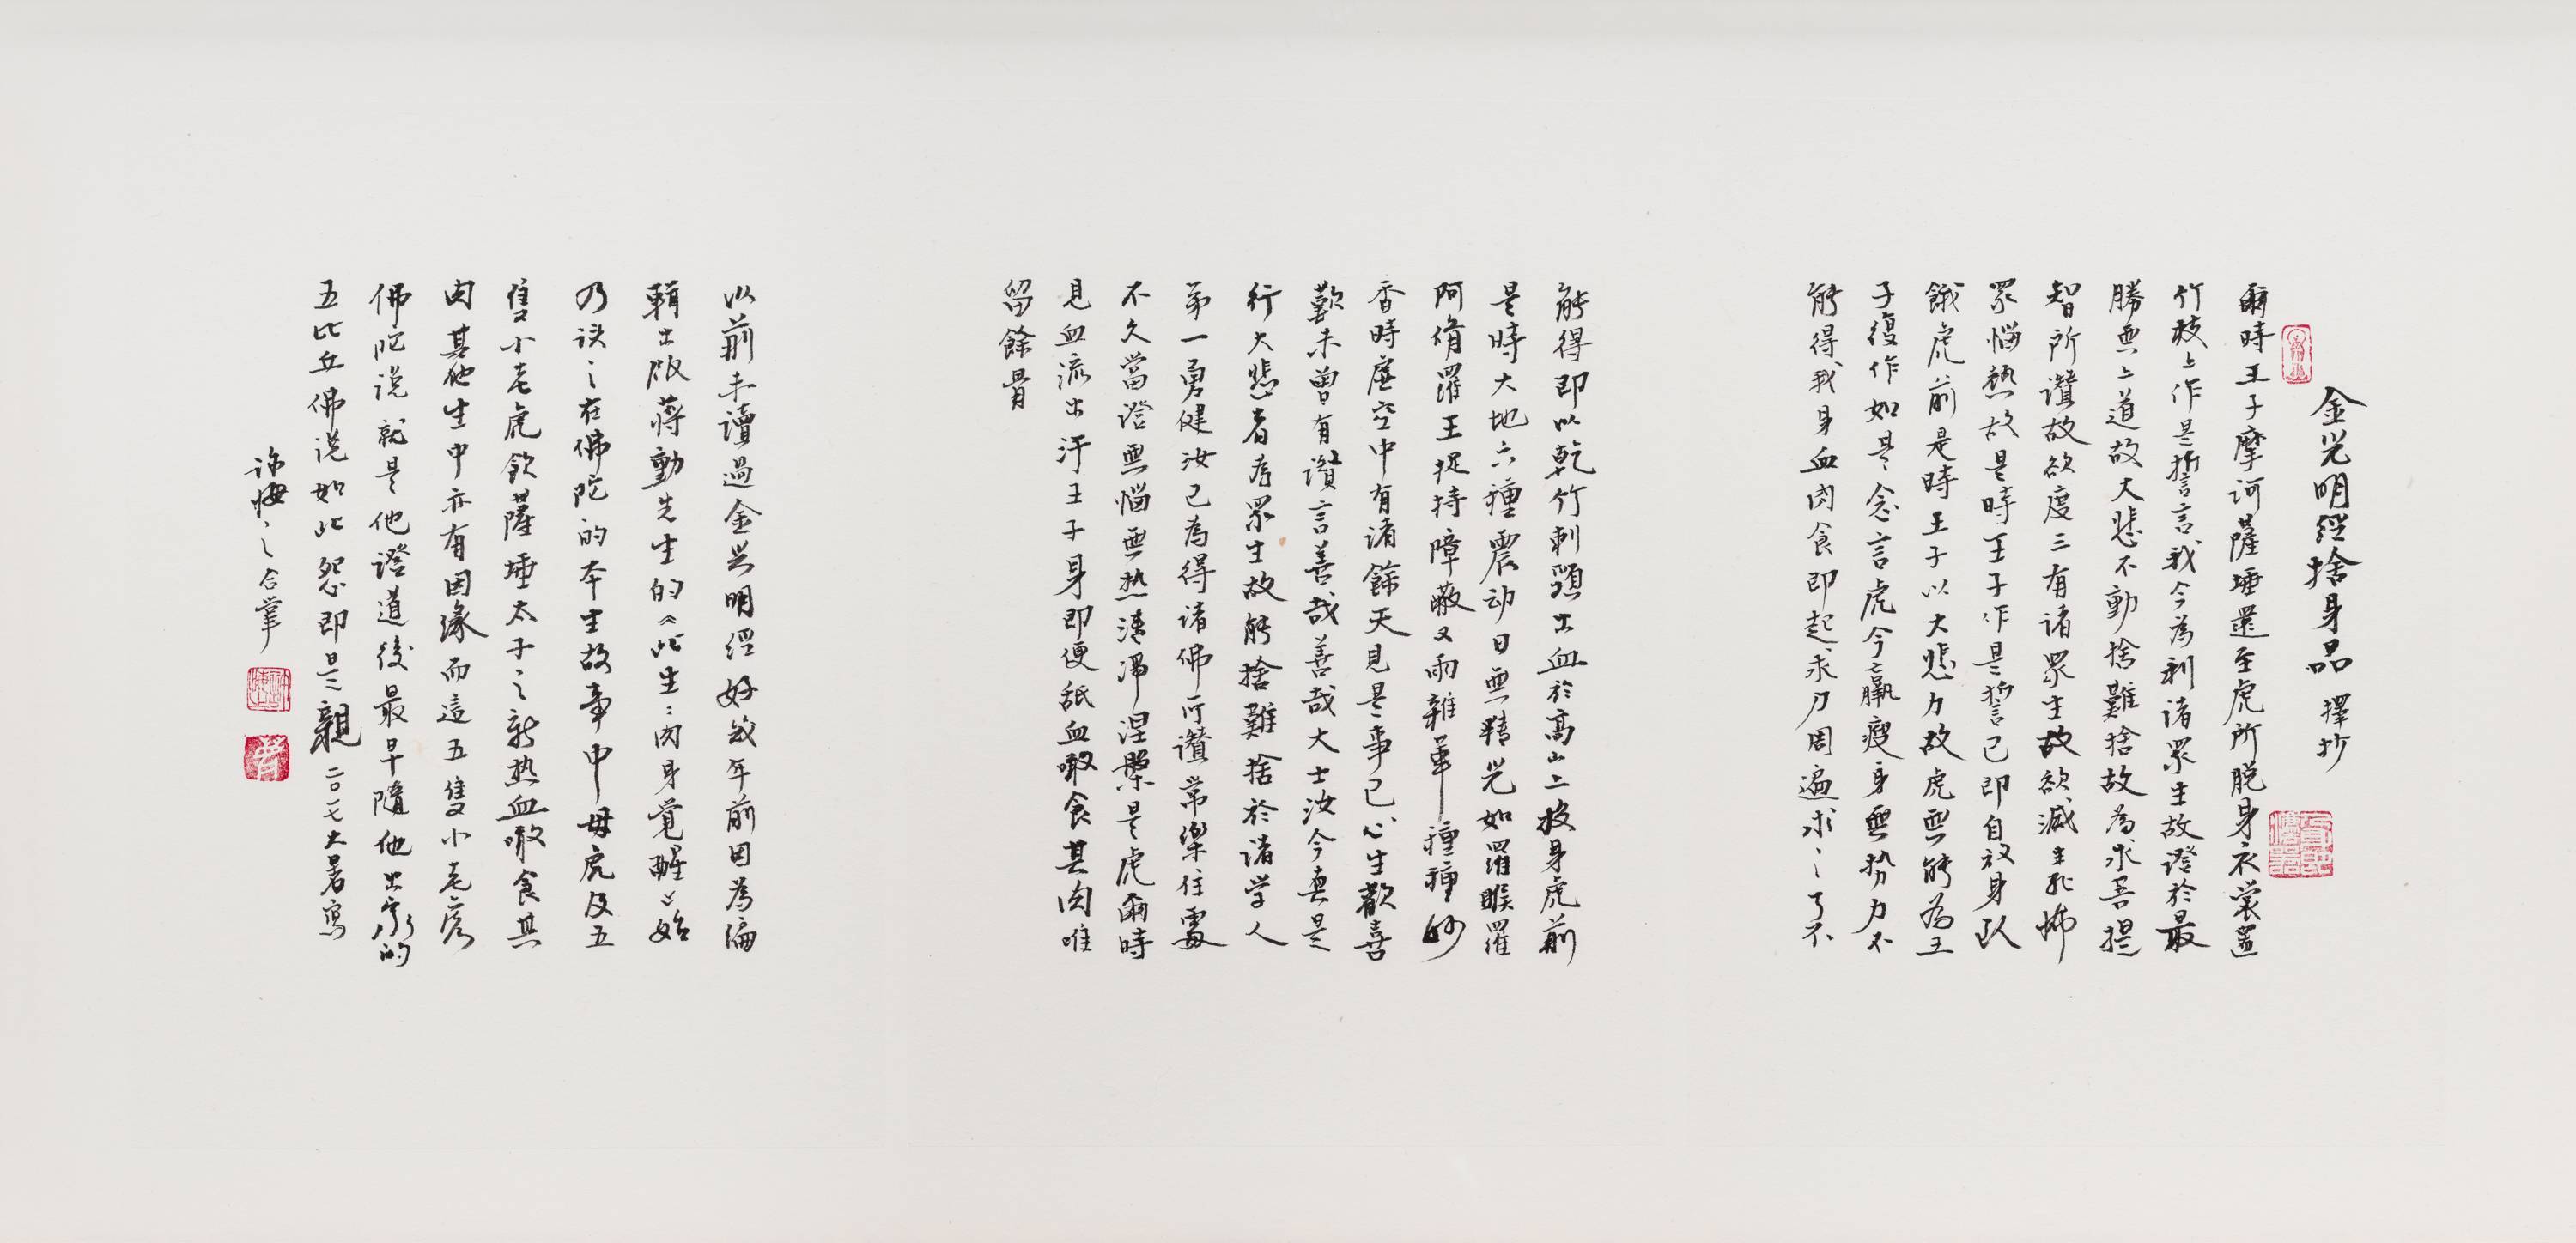 金光明經捨身品 擇抄
爾時王子摩訶薩埵還至虎所脫身衣裳置
竹枝上作是誓言我今為利諸眾生故證於最
勝無上道故大悲不動捨難捨故為求菩提
智所讚故欲度三有諸眾生故欲滅生死怖
眾惱熱故是時王子作是誓已即自放身臥
餓虎前是時王子以大悲力故虎無能為王
子復作如是念言虎今羸瘦身無勢力不
能得我身血肉食即起求刀周遍求之了不
能得即以乾竹刺頸出血於高山上投身虎前
是時大地六種震动日無精光如羅睺羅
阿脩羅王捉持障蔽又雨雜華種種妙
香時虛空中有諸餘天見是事已心生歡喜
歎未曾有讚言善哉善哉大士汝今真是
行大悲者為眾生故能捨難捨於諸学人
第一勇健汝已為得諸佛所讚常樂住處
不久當證無惱無热清涼涅槃是虎爾時
見血流出汙王子身即便舐血噉食其肉唯
留餘骨
以前未讀過金光明經好幾年前因為編
輯出版蔣勳先生的《此生：肉身覺醒》始
乃讀之在佛陀的本生故事中母虎及五
隻小老虎飲薩埵太子之新热血噉食其
肉其他生中亦有因緣而這五隻小老虎
佛陀說就是他證道後最早隨他出家的
五比丘佛說如此怨即是親 二〇一七大暑寫
許悔之合掌